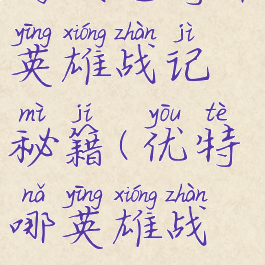 yīng xióng zhàn jì
英雄战记
mì jí yōu tè
秘籍(优特
nǎ yīng xióng zhàn
哪英雄战